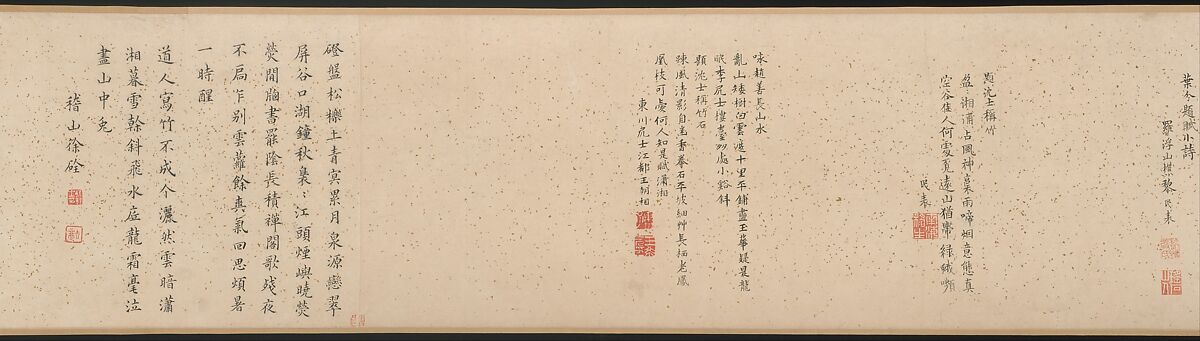 葉令題賦小詩
羅浮山樵黎民表
題沈士稱竹
湘瀟占風神裊雨啼烟意態真
空谷佳人何處覓遠山猶帶綠蛾嚬
民表
咏趙善長山水
亂山矮樹白雲遮十里平鋪盡玉華疑是龍
眠李居士樓臺妙處小谿斜
題沈士稱竹石
疎風清影自為香拳石平坡細艸長栖老鳳
凰枝可愛何人知是賦瀟湘
東川居士江都王朝相
磴盤松櫟土青冥累月泉源戀翠
屏谷口湖鐘秋裊〻江頭煙嶼曉熒
熒閒牕書罷陰長積禪閣歌殘夜
不扃乍別雲蘿餘爽氣回思煩暑
一時醒
道人寫竹不成个灑然雲暗瀟
湘暮雪榦斜飛水底龍霜毫泣
盡山中兔
稽山徐硂